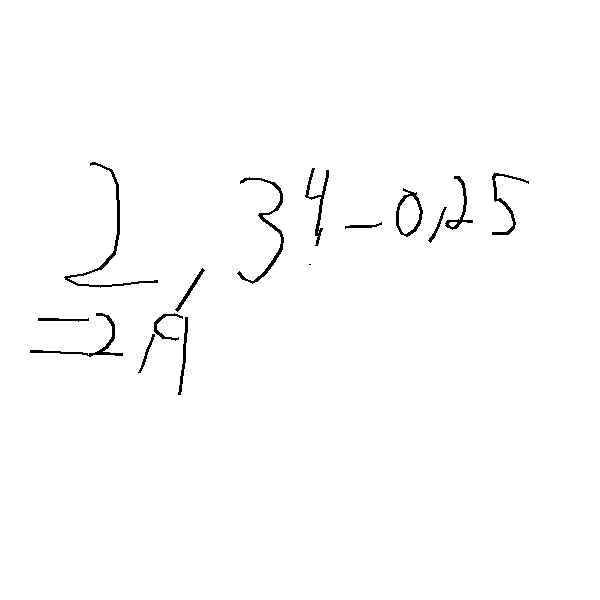 2,34-0,25
=2,9